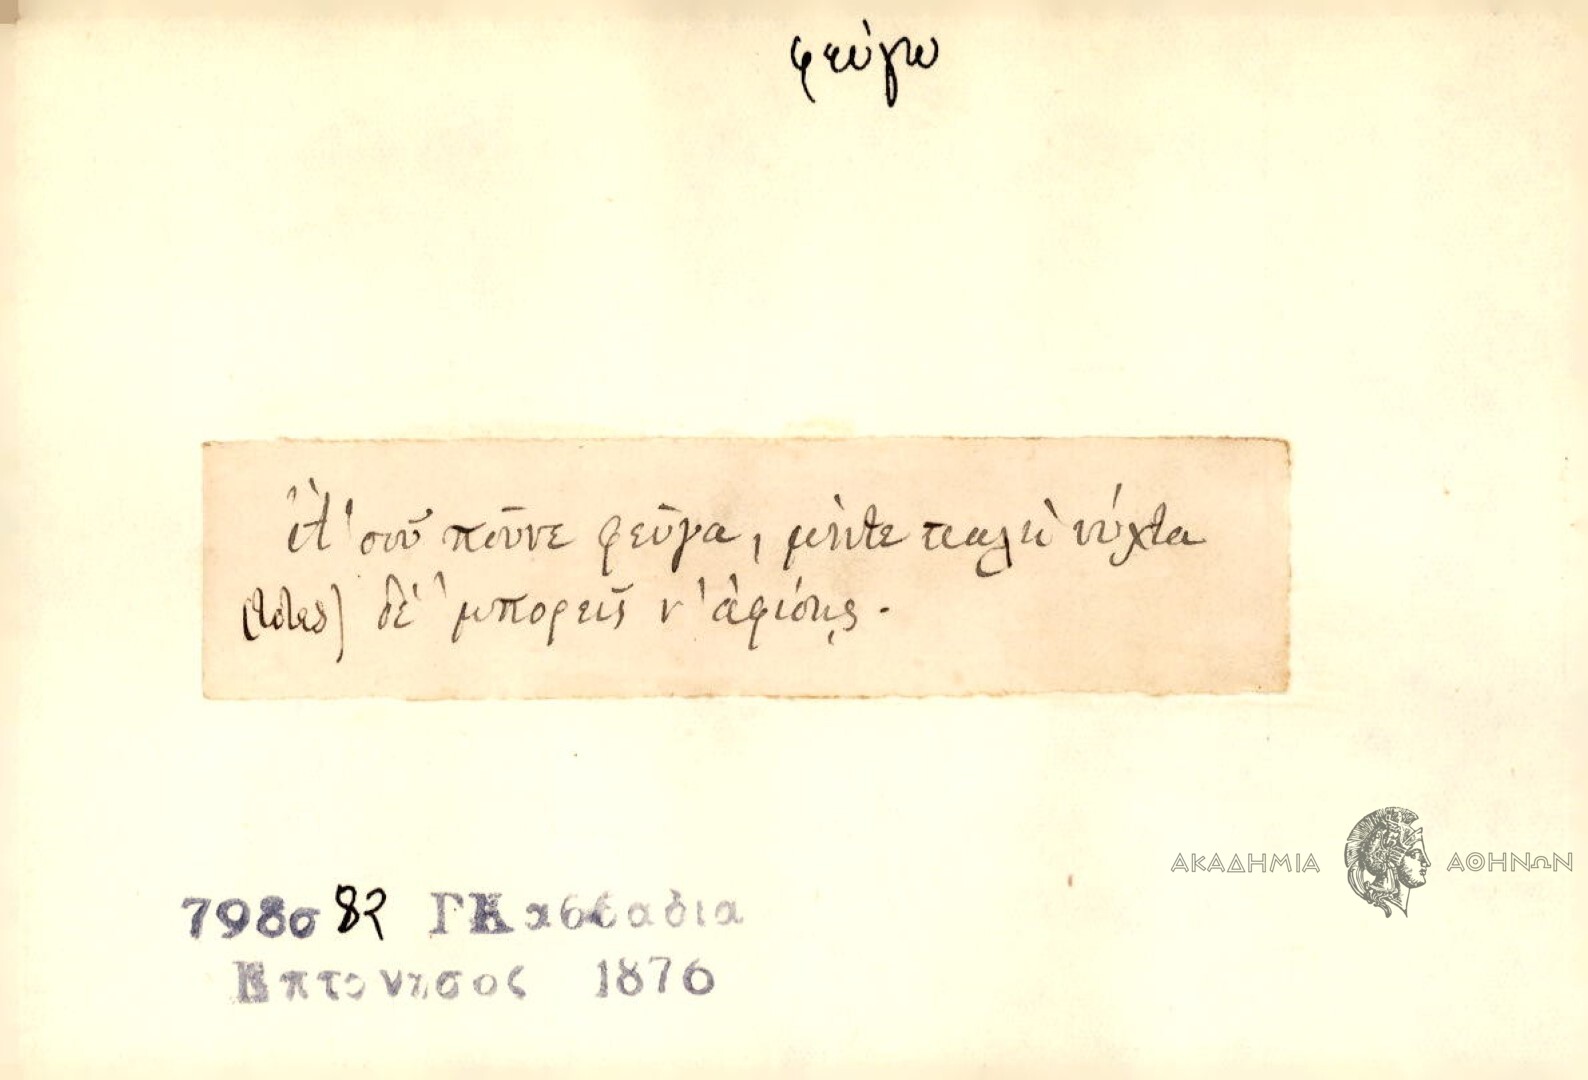 φεύγω
Ἂ σοῦ ποῦνε φεῦγα, μήτε μιαλὴ νύχτα
(τότες) δὲ μπορεῖς ν' ἀφίσῃς.
798σ 82 ΓΚασσαδια
Επτονησος 1876
ΑΚΑΔΗΜΙΑ ΑΘΗΝΩΝ